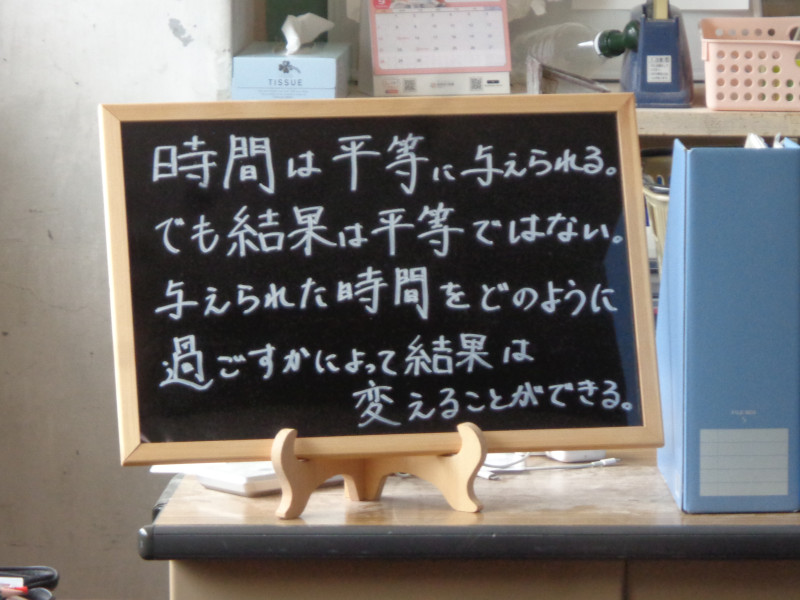 TISSUE
時間は平等に与えられる。
でも結果は平等ではない。
与えられた時間をどのように
過ごすかによって結果は
変えることができる。